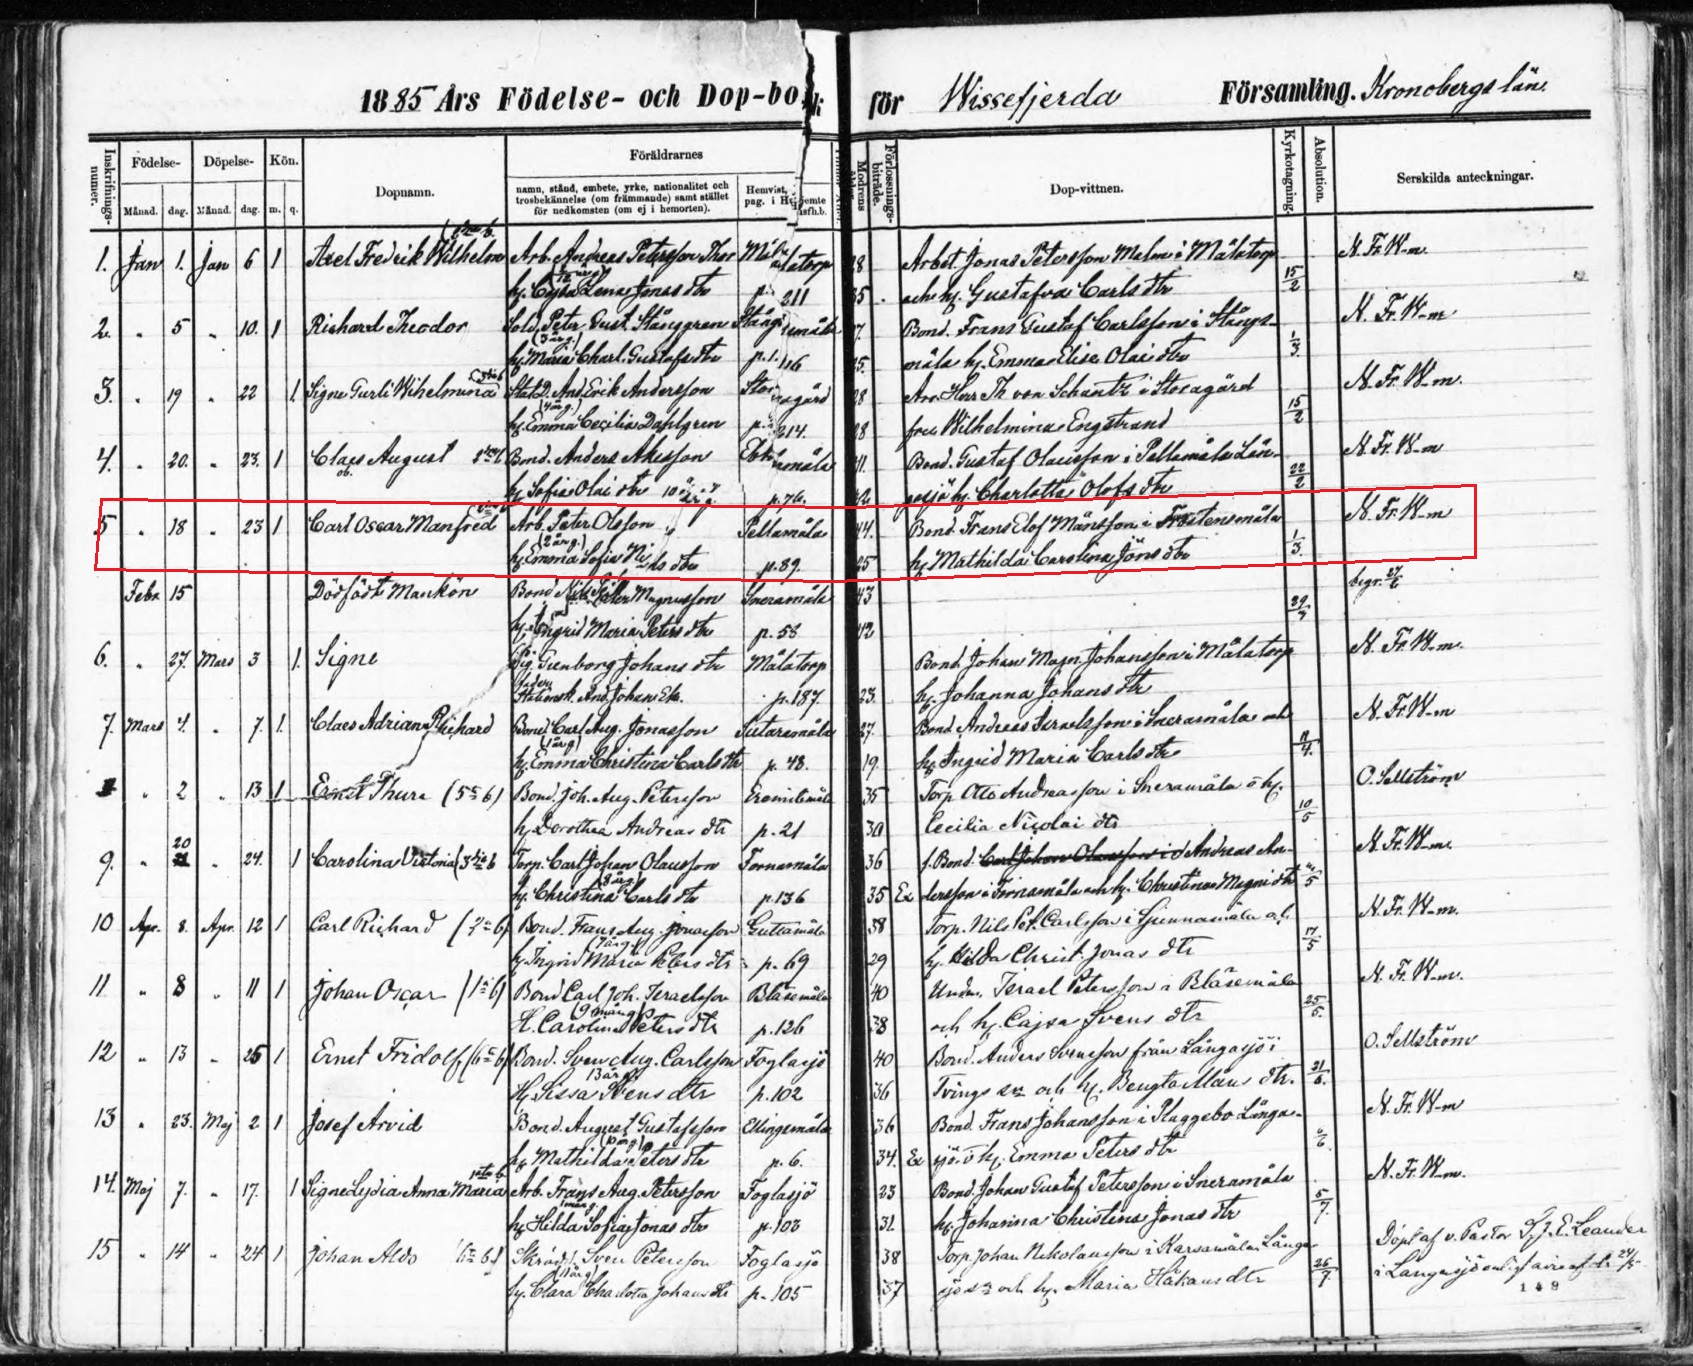 1885 Års Födelse- och Dop-bok för Wissefjerda Församling. Kronobergs län.
Inskrifnings-numer. Födelse- Döpelse- Kön. Dopnamn. Föräldrarnes Modrens Förlossnings-biträde. Dop-vittnen. Kyrkotagning. Absolution. Serskilda anteckningar.
Månad. dag. Månad. dag. m. q. namn, stånd, embete, yrke, nationalitet och trosbekännelse (om främmande) samt stället för nedkomsten (om ej i hemorten). Hemvist, pag. i
1. Jan 1. Jan 6 1 Axel Fredrik Wilhelm Arb. Andreas Petersson Thor Målatorp 38 Arbet. Jonas Petersson Malm i Målatorp N. Fr. W-m.
hj. Cajsa Lena Jonas dtr p. 211 35 och hj. Gustafva Carls dtr 15/2
2. " 5 " 10. 1 Richard Theodor Sold. Peter Gust. Stånggren Bond. Frans Gustaf Carlsson i Stångs- N. Fr. W-m
(3 årg.)
hj. Maria Charl. Gustafs dtr p. 116 25. måla hj. Emma Elise Olai dtr 1/3
3. " 19 " 22 1 Signe Gurli Wilhelmina Stat.D. And. Erik Andersson Storagård 28 Arr. Herr Th von Schantz i Storagård N. Fr. W-m.
(4 årg.)
hj. Emma Cecilia Dahlgren p. 214. 28 fru Wilhelmina Engstrand 15/2
4. " 20. " 23. 1 Claes August Bond. Anders Akesson 41. Bond. Gustaf Olausson i Pellamåla Län- N. Fr. W-m
hj. Sofia Olai dtr p. 76. 42 gasjö hj. Charlotta Olofs dtr 22/2
5 " 18 " 23 1 Carl Oscar Manfred Arb. Peter Olsson Pellamåla 44. Bond. Frans Elof Månsson i Frostensmåla N. Fr. W-m
(2 årg.)
hj. Emma Sofia Nils dtr p. 89. 25 hj. Mathilda Carolina Jöns dtr 1/3.
Febr 15 Dödfödt Mankön Bond Magnusson Sneramåla 43 begr.
hj. Ingrid Maria Peters dtr p. 58 42
6. " 27. Mars 3 1. Signe Pig. Gunborg Johans dtr Målatorp Bond. Johan Magn. Johansson i Målatorp N. Fr. W-m.
Fadern And Johan Ek. p. 187. 23. hj. Johanna Johans dtr
7. Mars 4. " 7. 1. Claes Adrian Richard Bond. Carl Aug. Jonasson Sutaremåla 27. Bond. Andreas Israelsson i Sneramåla och N. Fr. W-m
(1 årg)
hj. Emma Christina Carls dtr p. 48. 19. hj. Ingrid Maria Carls dtr
" 2 " 13 1 Ernst Thure (5te b) Bond. Joh. Aug. Petersson Eremitemåla 35 Torp. Otto Andreasson i Sneramåla o hj. O. Sellström
hj. Dorothea Andreas dtr p. 21 30 Cecilia Nicolai dtr 10/5
9. " 20 " 24. 1 Carolina Victoria (3dje b Torp. Carl Johan Olausson Tornamåla 36 f. Bond. Carl Johan Olausson i o Andreas An- N. Fr. W-m.
hj. Christina Carls dtr p. 136 35 Ex dersson i Tornamåla och hj. Christina Magni dtr
10 Apr. 8. Apr. 12 1 Carl Richard Bond. Frans Aug. Jonasson Guttamåla 38 Torp. Nils Pet. Carlsson i Ljunnamåla och N. Fr. W-m.
(7 årg.)
hj. Ingrid Maria Peters dtr p. 69 29 hj. Hilda Christ. Jonas dtr 17/5
11 " 8 " 11 1 Johan Oscar (1sta b) Bond Carl Joh. Israelsson Blåsemåla 40 Undm. Israel Petersson i Blåsemåla N. Fr. W-m.
(9 mång)
H. Carolina Peters dtr p. 126 38 och hj. Cajsa Svens dtr 25/5.
12 " 13 " 25 1 Ernst Fridolf (6te b) Bond. Sven Aug. Carlsson Foglasjö 40 Bond. Anders Svensson från Långasjö i O. Sellström
13 årg
Hj. Sissa Svens dtr p. 102 36 Tvings sn och hj. Bengta Måns dtr. 21/6.
13 " 23. Maj 2 1 Josef Arvid Bond. August Gustafsson Ellingsmåla 36 Bond. Frans Johansson i Flaggebo Långa- N. Fr. W-m
hj. Mathilda Peters dtr p. 6. 34. Ex sjö o hj. Emma Peters dtr
14. Maj 7. " 17. 1 Signe Lydia Anna Maria Arb. Frans Aug. Petersson Foglasjö 23 Bond. Johan Gustaf Petersson i Sneramåla N. Fr. W-m.
hj. Hilda Sofia Jonas dtr p. 103 31. hj. Johanna Christina Jonas dtr 5/7.
15 " 14 " 24 1 Johan Aldo Skräd. Sven Petersson Foglasjö 38 Torp. Johan Nikolausson i Karsamåla Långa- Döpt af v. Pastor S. J. E. Leander
(11 årg)
hj. Clara Charlotta Johans dtr p. 105 37 sjö sn och hj. Maria Håkans dtr 26/7. i Långasjö enligt
149